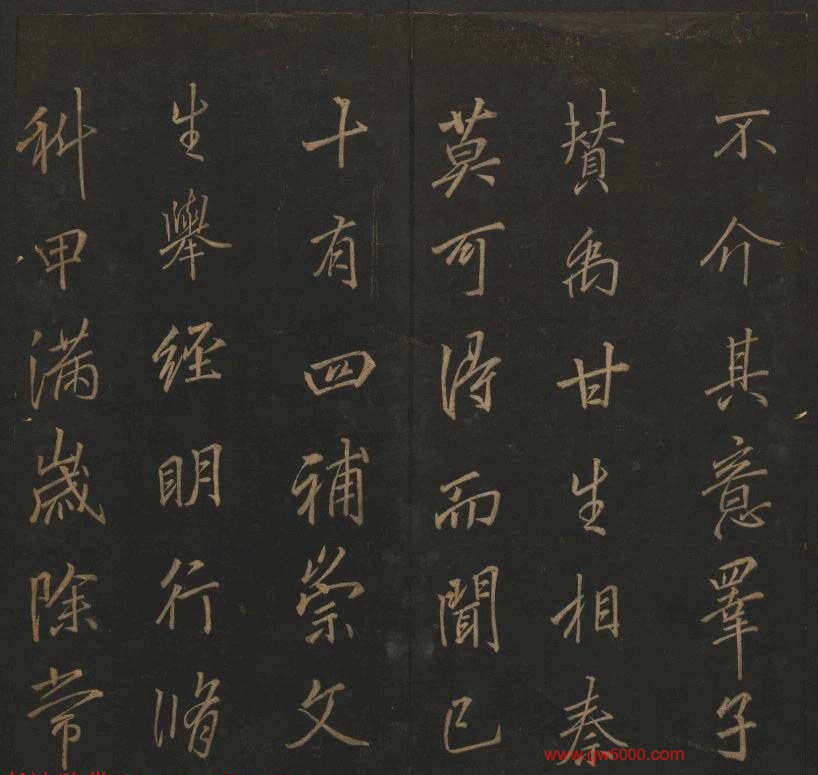 不介其意羣子
賛禹甘生相秦
莫可得而聞已
十有四補崇文
生舉經明行脩
科甲滿歲除常
www.yw5000.com